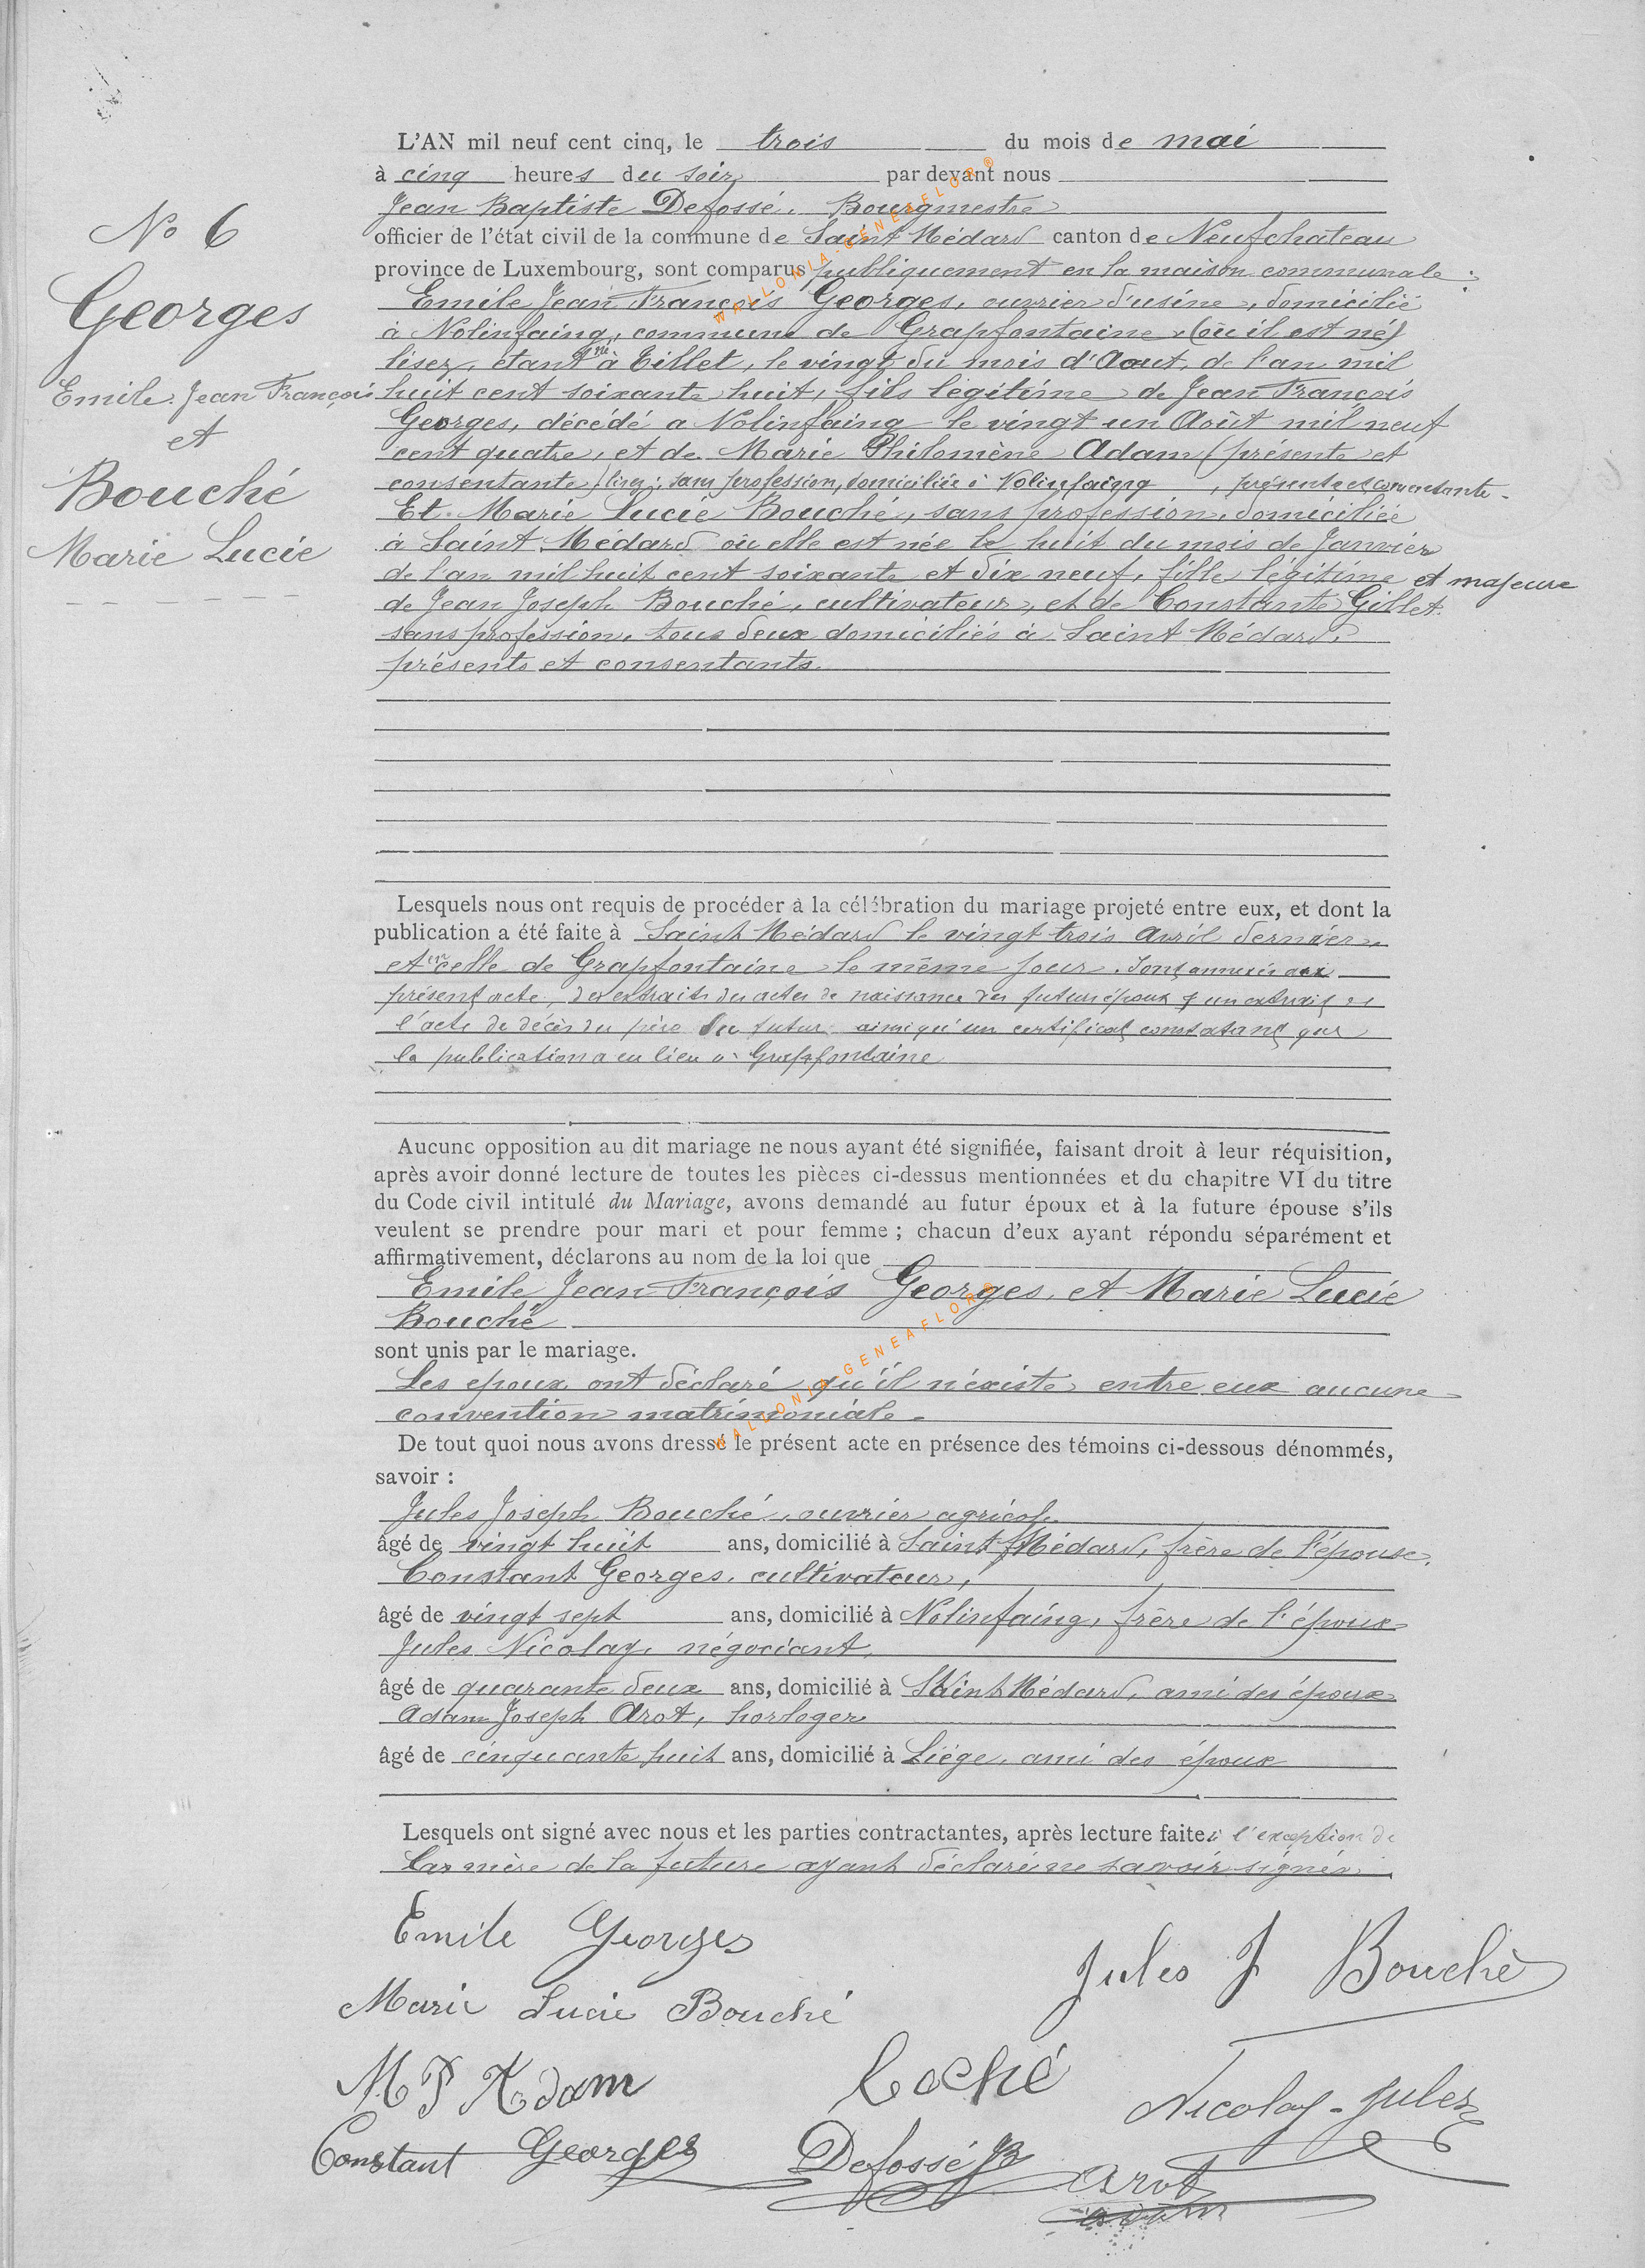 No 6
Georges
Emile Jean François
et
Bouché
Marie Lucie
L'AN mil neuf cent cinq, le trois du mois de mai
à cinq heures du soir par devant nous
Jean Baptiste Defossé, Bourgmestre
officier de l'état civil de la commune de Saint Médard canton de Neufchateau
province de Luxembourg, sont comparus publiquement en la maison communale :
Emile Jean François Georges, ouvrier d'usine, domicilié
à Nolinfaing, commune de Grapfontaine, (où il est né)
lisez, étant né à Tillet, le vingt du mois d'Aout, de l'an mil
huit cent soixante huit, fils légitime de Jean François
Georges, décédé a Nolinfaing le vingt un Août mil neuf
cent quatre, et de Marie Philomène Adam (présente et
consentante) lisez : sans profession, domiciliée à Nolinfaing, présente et consentante.
Et Marie Lucie Bouché, sans profession, domiciliée
à Saint Médard où elle est née le huit du mois de Janvier
de l'an mil huit cent soixante et dix neuf, fille légitime et majeure
de Jean Joseph Bouché, cultivateur, et de Constante Gillet
sans profession, tous deux domiciliés à Saint Médard,
présents et consentants.
Lesquels nous ont requis de procéder à la célébration du mariage projeté entre eux, et dont la
publication a été faite à Saint Médard le vingt trois Avril dernier
et en celle de Grapfontaine le même jour. Sont annexés au
présent acte, des extraits des actes de naissance des futurs époux & un extrait de
l'acte de décès du père du futur ainsi qu'un certificat constatant que
la publication a eu lieu à Grapfontaine
Aucune opposition au dit mariage ne nous ayant été signifiée, faisant droit à leur réquisition,
après avoir donné lecture de toutes les pièces ci-dessus mentionnées et du chapitre VI du titre
du Code civil intitulé du Mariage, avons demandé au futur époux et à la future épouse s'ils
veulent se prendre pour mari et pour femme ; chacun d'eux ayant répondu séparément et
affirmativement, déclarons au nom de la loi que
Emile Jean François Georges, et Marie Lucie
Bouché
sont unis par le mariage.
Les epoux ont déclaré qu'il n'existe entre eux aucune
convention matrimoniale.
De tout quoi nous avons dressé le présent acte en présence des témoins ci-dessous dénommés,
savoir :
Jules Joseph Bouché, ouvrier agricole
âgé de vingt huit ans, domicilié à Saint Médard, frère de l'épouse.
Constant Georges, cultivateur,
âgé de vingt sept ans, domicilié à Nolinfaing, frère de l'époux
Jules Nicolay, négociant,
âgé de quarante deux ans, domicilié à Saint Médard, ami des époux
Adam Joseph Arot, horloger
âgé de cinquante huit ans, domicilié à Liége, ami des époux
Lesquels ont signé avec nous et les parties contractantes, après lecture faite à l'exception de
la mère de la future ayant déclaré ne savoir signer
Emile Georges
Jules J Bouché
Marie Lucie Bouché
M P Adam
Nicolay-Jules
Constant Georges
Defossé JB
Arot
WALLONIA-GENEAFLOR®
WALLONIA-GENEAFLOR®